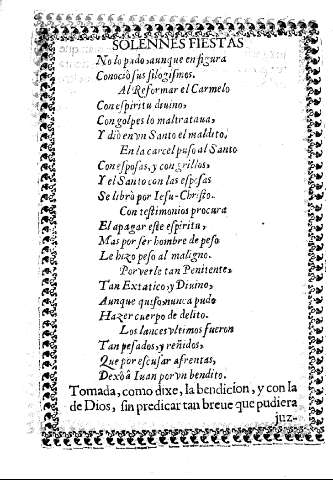 SOLENNES FIESTAS
No lo pudo, aunque en figura
Conociò sus silogismos.
Al Reformar el Carmelo
Con espiritu diuino,
Con golpes lo maltrataua,
Y diò en vn Santo el maldito.
En la carcel puso al Santo
Con esposas, y con grillos,
Y el Santo con las esposas
Se librò por Iesu-Christo.
Con testimonios procura
El apagar este espiritu,
Mas por ser hombre de peso
Le hizo peso al maligno.
Por verle tan Penitente,
Tan Extatico, y Diuino,
Aunque quiso, nunca pudo
Hazer cuerpo de delito.
Los lances vltimos fueron
Tan pesados, y reñidos,
Que por escusar afrentas,
Dexò à Iuan por vn bendito.
Tomada, como dixe, la bendicion, y con la
de Dios, sin predicar tan breue que pudiera
juz-